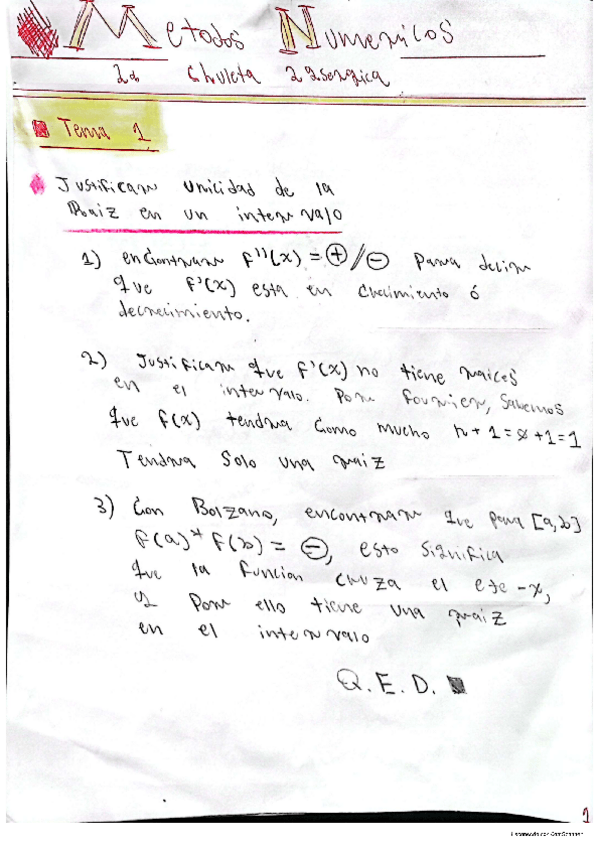 Metodos Numericos
Chuleta
Tema 1
Justificar unicidad de la
Raiz en un intervalo
1) encontrar f''(x) = ⊕/⊖ para decir
que f'(x) esta en crecimiento ó
decrecimiento.
2) Justificar que f'(x) no tiene raices
en el intervalo. Por fourier, sabemos
que f(x) tendra como mucho n + 1 = 0 + 1 = 1
Tendra Solo una raiz
3) Con Bolzano, encontrar que para [a,b]
f(a)*f(b) = ⊖, esto significa
que la funcion cruza el eje -x,
y por ello tiene una raiz
en el intervalo
Q.E.D. ■
1
Escaneado con CamScanner